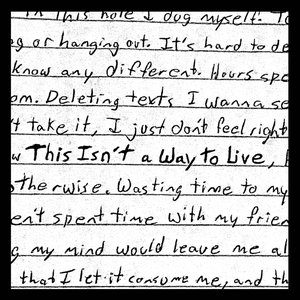 in this hole I dug myself. To
or hanging out. It's hard to
know any different. Hours spe
om. Deleting texts I wanna se
't take it, I just don't feel right
w This Isn't a Way to Live,
otherwise. Wasting time to my
en't spent time with my frien
g my mind would leave me al
that I let it consume me, and th